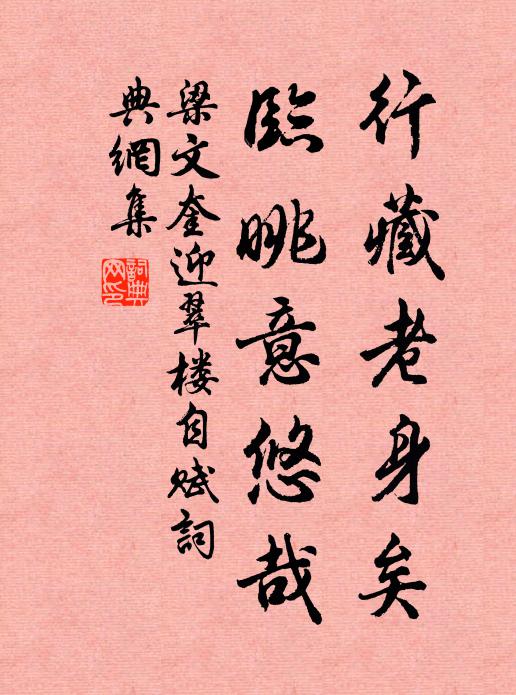 行藏老身矣
臨眺意悠哉
梁文奎迎翠楼自賦詞
典網集
詞典
网印